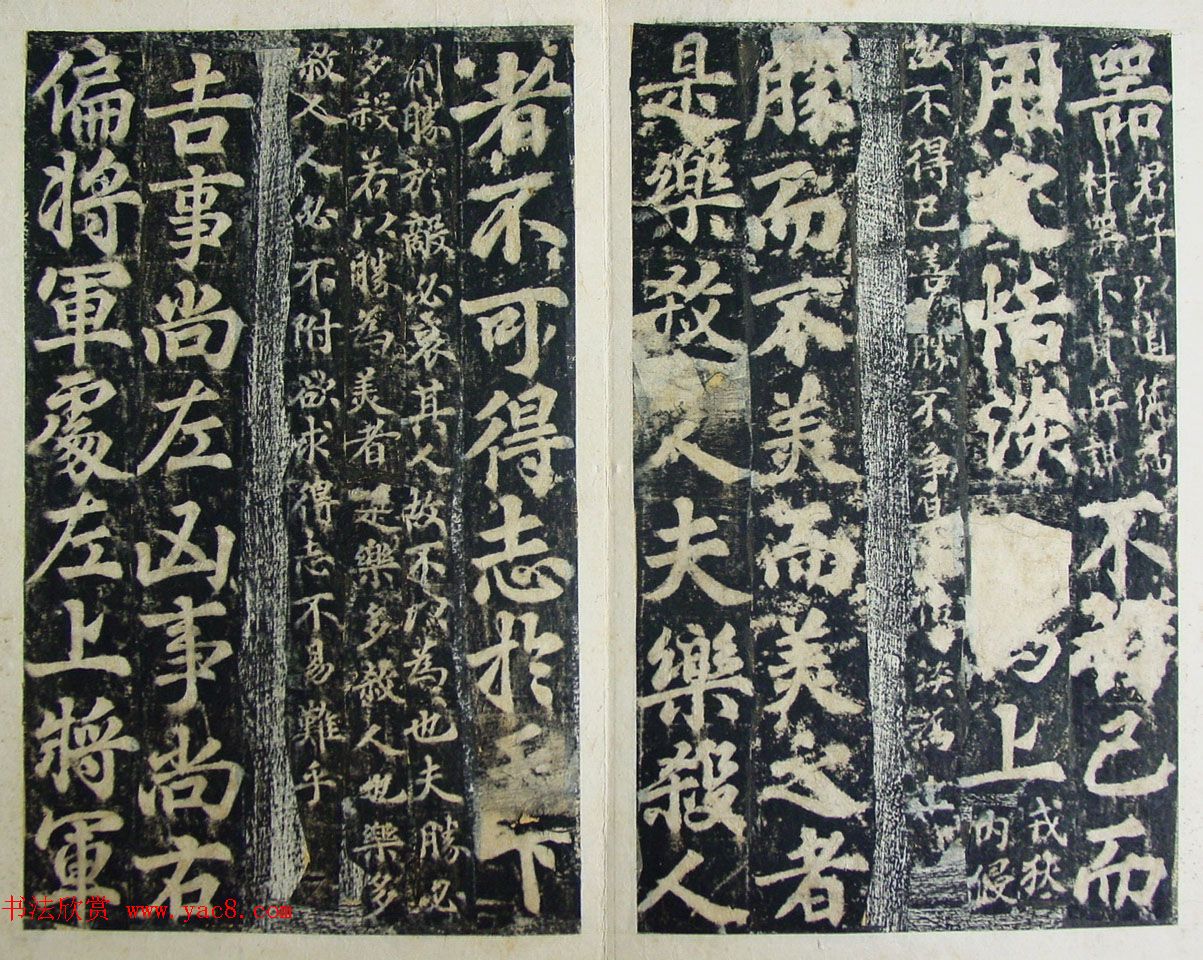 器君子以道德為
材器不貴兵
不得已而
用之恬淡上戎狄
內侵
故不得已善勝不爭
勝而不美而美之者
是樂煞人夫樂殺人
者不可得志於天下
制勝於敵必哀其人故不以為也夫勝必
多殺若以勝為美者是樂多煞人也樂多
煞人人必不附欲求得志不易難乎
吉事尚左凶事尚右
偏將軍處左上將軍
书法欣赏 www.yac8.com